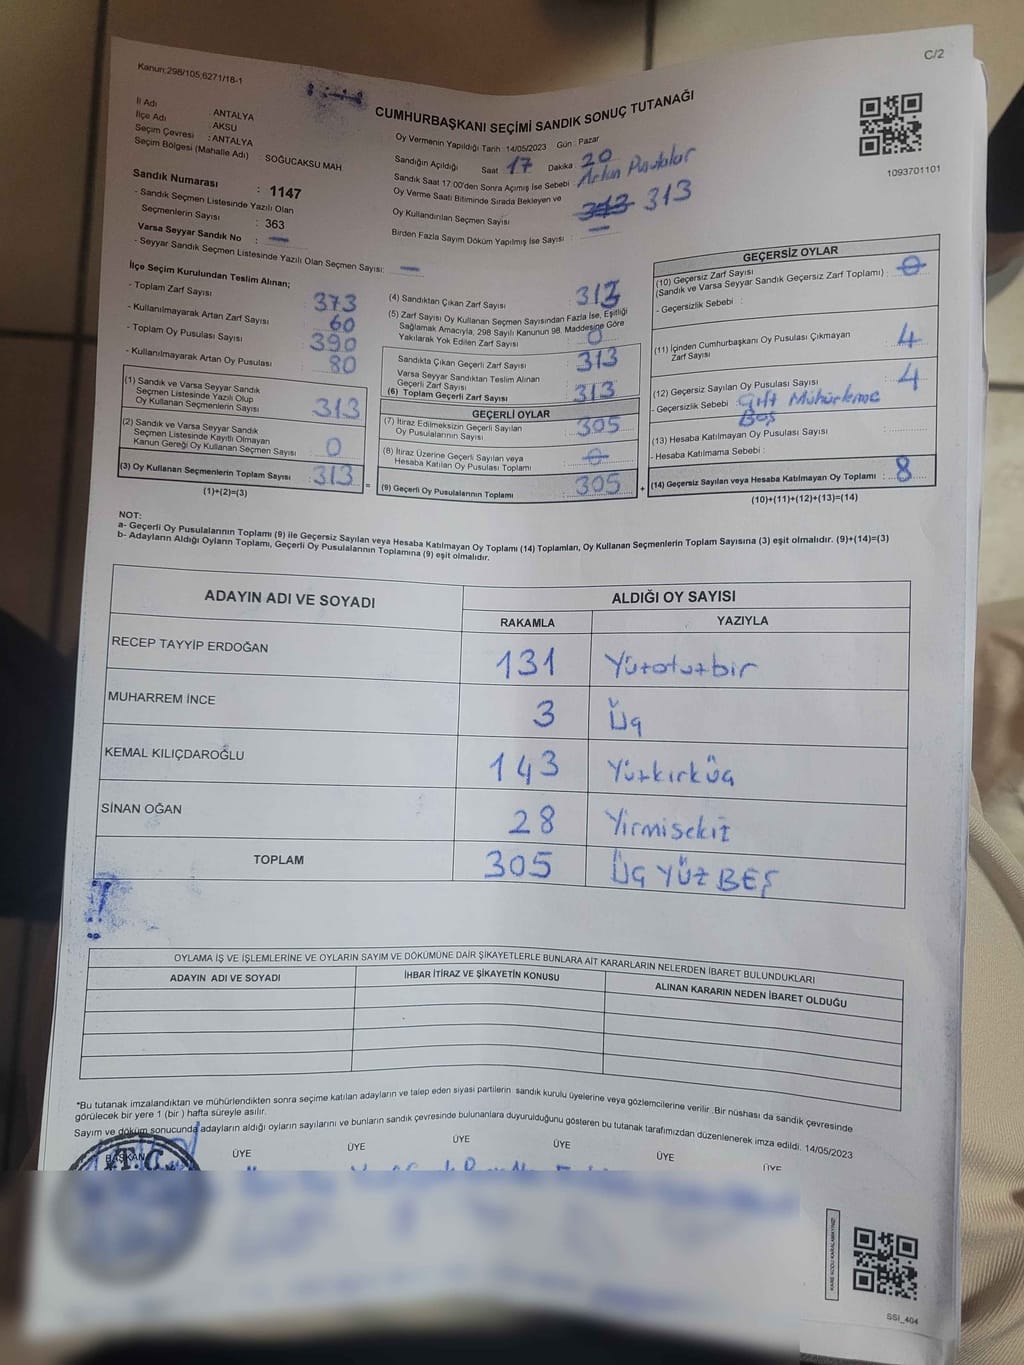 C/2
Kanun:298/105,6271/18-1
CUMHURBAŞKANI SEÇİMİ SANDIK SONUÇ TUTANAĞI
1093701101
İl Adı : ANTALYA
İlçe Adı : AKSU
Seçim Çevresi : ANTALYA
Seçim Bölgesi (Mahalle Adı) SOĞUCAKSU MAH
Sandık Numarası : 1147
- Sandık Seçmen Listesinde Yazılı Olan
Seçmenlerin Sayısı : 363
Varsa Seyyar Sandık No : —
- Seyyar Sandık Seçmen Listesinde Yazılı Olan Seçmen Sayısı: —
Oy Vermenin Yapıldığı Tarih : 14/05/2023 Gün : Pazar
Sandığın Açıldığı Saat 17 Dakika 20
Sandık Saat 17.00'den Sonra Açılmış İse Sebebi : Artan Pusulalar
Oy Verme Saati Bitiminde Sırada Bekleyen ve
Oy Kullandırılan Seçmen Sayısı 313 313
Birden Fazla Sayım Döküm Yapılmış İse Sayısı : —
İlçe Seçim Kurulundan Teslim Alınan;
- Toplam Zarf Sayısı 373
- Kullanılmayarak Artan Zarf Sayısı 60
- Toplam Oy Pusulası Sayısı 390
- Kullanılmayarak Artan Oy Pusulası 80
(1) Sandık ve Varsa Seyyar Sandık
Seçmen Listesinde Yazılı Olup
Oy Kullanan Seçmenlerin Sayısı : 313
(2) Sandık ve Varsa Seyyar Sandık
Seçmen Listesinde Kayıtlı Olmayan
Kanun Gereği Oy Kullanan Seçmen Sayısı : 0
(3) Oy Kullanan Seçmenlerin Toplam Sayısı : 313
(1)+(2)=(3)
(4) Sandıktan Çıkan Zarf Sayısı : 313
(5) Zarf Sayısı Oy Kullanan Seçmen Sayısından Fazla İse, Eşitliği
Sağlamak Amacıyla; 298 Sayılı Kanunun 98. Maddesine Göre
Yakılarak Yok Edilen Zarf Sayısı : 0
Sandıkta Çıkan Geçerli Zarf Sayısı : 313
Varsa Seyyar Sandıktan Teslim Alınan
Geçerli Zarf Sayısı
(6) Toplam Geçerli Zarf Sayısı : 313
GEÇERLİ OYLAR
(7) İtiraz Edilmeksizin Geçerli Sayılan
Oy Pusulalarının Sayısı : 305
(8) İtiraz Üzerine Geçerli Sayılan veya
Hesaba Katılan Oy Pusulası Toplamı : 0
= (9) Geçerli Oy Pusulalarının Toplamı : 305
GEÇERSİZ OYLAR
(10) Geçersiz Zarf Sayısı
(Sandık ve Varsa Seyyar Sandık Geçersiz Zarf Toplamı) : 0
- Geçersizlik Sebebi :
(11) İçinden Cumhurbaşkanı Oy Pusulası Çıkmayan
Zarf Sayısı : 4
(12) Geçersiz Sayılan Oy Pusulası Sayısı : 4
- Geçersizlik Sebebi : Çift Mühürleme
Boş
(13) Hesaba Katılmayan Oy Pusulası Sayısı :
- Hesaba Katılmama Sebebi :
+ (14) Geçersiz Sayılan veya Hesaba Katılmayan Oy Toplamı : 8
(10)+(11)+(12)+(13)=(14)
NOT:
a- Geçerli Oy Pusulalarının Toplamı (9) ile Geçersiz Sayılan veya Hesaba Katılmayan Oy Toplamı (14) Toplamları, Oy Kullanan Seçmenlerin Toplam Sayısına (3) eşit olmalıdır. (9)+(14)=(3)
b- Adayların Aldığı Oyların Toplamı, Geçerli Oy Pusulalarının Toplamına (9) eşit olmalıdır.
ADAYIN ADI VE SOYADI ALDIĞI OY SAYISI
RAKAMLA YAZIYLA
RECEP TAYYİP ERDOĞAN 131 Yüzotuzbir
MUHARREM İNCE 3 Üç
KEMAL KILIÇDAROĞLU 143 Yüzkırküç
SİNAN OĞAN 28 Yirmisekiz
TOPLAM 305 ÜÇ YÜZ BEŞ
OYLAMA İŞ VE İŞLEMLERİNE VE OYLARIN SAYIM VE DÖKÜMÜNE DAİR ŞİKAYETLERLE BUNLARA AİT KARARLARIN NELERDEN İBARET BULUNDUKLARI
ADAYIN ADI VE SOYADI İHBAR İTİRAZ VE ŞİKAYETİN KONUSU ALINAN KARARIN NEDEN İBARET OLDUĞU
*Bu tutanak imzalandıktan ve mühürlendikten sonra seçime katılan adayların ve talep eden siyasi partilerin sandık kurulu üyelerine veya gözlemcilerine verilir. Bir nüshası da sandık çevresinde
görülecek bir yere 1 (bir ) hafta süreyle asılır.
Sayım ve döküm sonucunda adayların aldığı oyların sayılarını ve bunların sandık çevresinde bulunanlara duyurulduğunu gösteren bu tutanak tarafımızdan düzenlenerek imza edildi. 14/05/2023
BAŞKAN ÜYE ÜYE ÜYE ÜYE ÜYE ÜYE
T.C.
KARE KODU KARALAMAYINIZ!
SSI_404